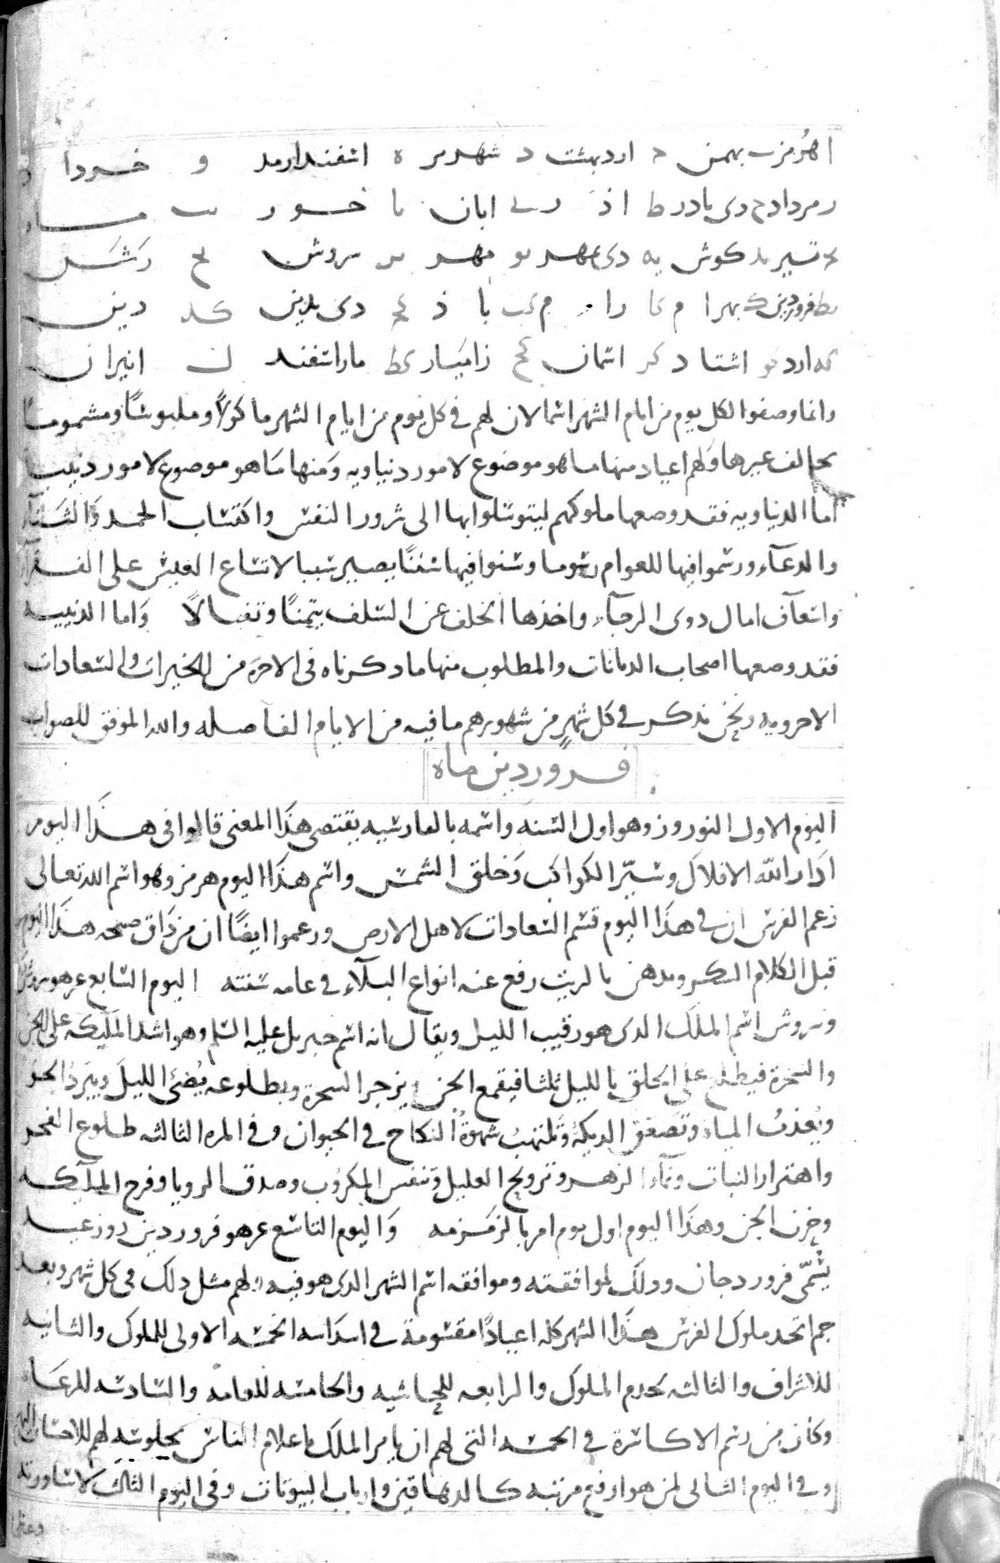 اهرمز ب بهمن ج اردبهشت د شهرير ه اسفندارمد و خرداد
ز مرداد ح دى بادر ط اذر ى ابان يا خور يب ماه
يج تير يد كوش يه دى بمهر يو مهر يز سروش يح رشن
يط فروردين ك بهرام كا رام كب باذ كج دى بدين كد دين
كه ارد كو اشتاد كز اسمان كح زامياد كط ماراسفند ل انيران
وانما وضعوا لكل يوم من ايام الشهر اسما لان لهم فى كل يوم من ايام الشهر ماكولا وملبوسا ومشموما
يخالف غيرها ولهم اعياد منها ما هو موضوع لامور دنياويه ومنها ما هو موضوع لامور دينيه
اما الدنياويه فقد وضعها ملوكهم ليتوسلوا بها الى سرور النفس واكتساب الحمد والثناء
والدعاء ورسموا فيها للعوام رسوما وسنوا فيها سننا يصير سببا لاتساع العيش على الفقراء
واسعاف امال ذوى الرجاء واخذها الخلف عن السلف تيمنا وتفالا واما الدينيه
فقد وضعها اصحاب الديانات والمطلوب منها ما ذكرناه فى الاخرة من الخيرات والسعادات
الاخرويه ونحن نذكر فى كل شهر من شهورهم ما فيه من الايام الفاضله والله الموفق للصواب
فروردين ماه
اليوم الاول النوروز وهو اول السنه واسمه بالفارسيه يقتضى هذا المعنى قالوا فى هذا اليوم
ادار الله الافلاك وسير الكواكب وخلق الشمس واسم هذا اليوم هرمز وهو اسم الله تعالى
زعم الفرس ان فى هذا اليوم قسم السعادات لاهل الارض وزعموا ايضا ان من ذاق صبيحه هذا اليوم
قبل الكلام السكر وتدهن بالزيت رفع عنه انواع البلاء فى عامه سنته اليوم السابع عشر هو سروش
وسروش اسم الملك الذى هو رقيب الليل ويقال انه اسم جبريل عليه السلم وهو اشد المليكه على الجن
والسحرة فيطلع على الخلق بالليل ثلثا فيقمع الجن ويزجر السحرة وبطلوعه يضئ الليل ويبرد الجو
ويعذب المياه وتصعق الديكة وتلتهب شهوة النكاح فى الحيوان وفى المره الثالثه طلوع الفجر
واهتزاز النبات ونماء الزهر وترويح العليل وتنفس المكروب وصدق الرويا وفرح المليكه
وحزن الجن وهذا اليوم اول يوم امر بالزمزمه واليوم التاسع عشر هو فروردين روز عيد
يسمى فروردجان وذلك لموافقته وموافقه اسم الشهر الذى هو فيه ولهم مثل ذلك فى كل شهر وبعد
جم اتخد ملوك الفرس هذا الشهر كله اعيادا مقسومة فى اسداسه الخمسه الاولى للملوك والثانيه
للاشراف والثالثه لخدم الملوك والرابعه للحاشيه والخامسه للعامه والسادسه للرعاء
وكان من رسم الاكاسرة فى الخمسه التى لهم ان يامر الملك باعلام الناس بجلوسه لهم للاحسان اليهم
وفى اليوم الثانى لمن هو ارفع مرتبه كالدهاقين وارباب البيوتات وفى اليوم الثالث لاساورته